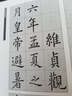 維貞觀
六年孟夏之
月皇帝避暑